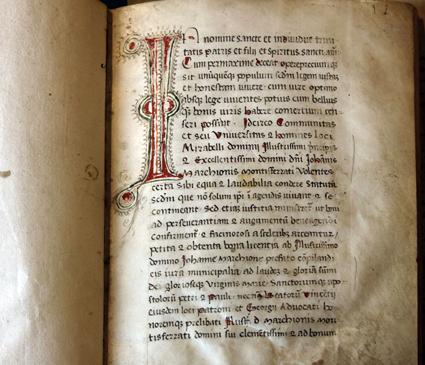 In nomine sancte et individue trini
tatis patris et filii et spiritus sancti am
Cum permaxime deceat opere preciumque
sit unumquemque populum scdm legem iustam
et honestam vivere cum vire optimo
absque lege viventes potius cum belluis
quam bonis viris habere comercium cen
seri possint Idcirco Communitas
et seu Universitas & homines loci
Mirabelli dominii Illustissimi principis
& Excellentissimi domini dni Iohanis
Marchionis Montisferrati Volentes
certa sibi equa & laudabilia condere Statuta
scdm que non solum ipsi agendis vivant & se
contineant Sed etiam iustitia ministret ut boni
ad perseverantiam & augumentum
confirment & facinorosi a sceleribus arceantur
petita & obtenta bona licentia ab Illustissimo
domino Iohanne Marchione prefato compilandi
eis iura municipalia ad laudem & gloriam
gloriose Virginis Marie Sanctorumque apo
stolorum petri & Pauli necnon beatorum Vincentii
eiusdem loci patroni et Georgii Advocati ho
noremque prelibati Illust d Marchionis Mon
tisferrati domini sui clementissimi & ad bonum